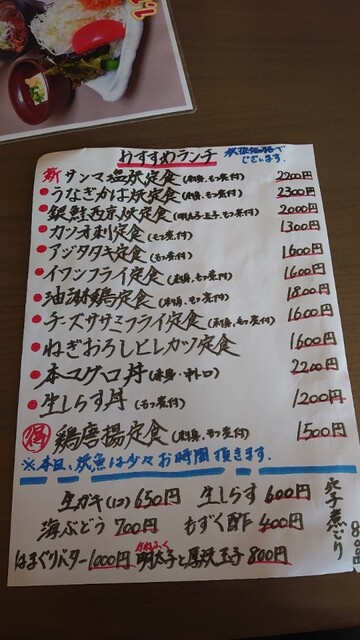 おすすめランチ
税抜価格でございます.
新 サンマ塩焼定食(刺身,もつ煮付) 2200円
うなぎかば焼定食(刺身,もつ煮付) 2300円
銀鮭西京焼定食(明太子,玉子,もつ煮付) 2000円
カツオ刺定食(もつ煮付) 1300円
アジタタキ定食(もつ煮付) 1600円
イワシフライ定食(刺身,もつ煮付) 1600円
油淋鶏定食(刺身,もつ煮付) 1800円
チーズササミフライ定食(刺身,もつ煮付) 1600円
ねぎおろしヒレカツ定食 1600円
本マグロ丼(赤身・中トロ) 2200円
生しらす丼(もつ煮付) 1200円
得 鶏唐揚定食(刺身,もつ煮付) 1500円
※本日,炊魚は少々お時間頂きます.
生ガキ(1コ) 650円 生しらす 600円
海ぶどう 700円 もずく酢 400円
はまぐりバター 1000円 かねふく 明太子と厚焼玉子 800円
穴子煮こごり 800円